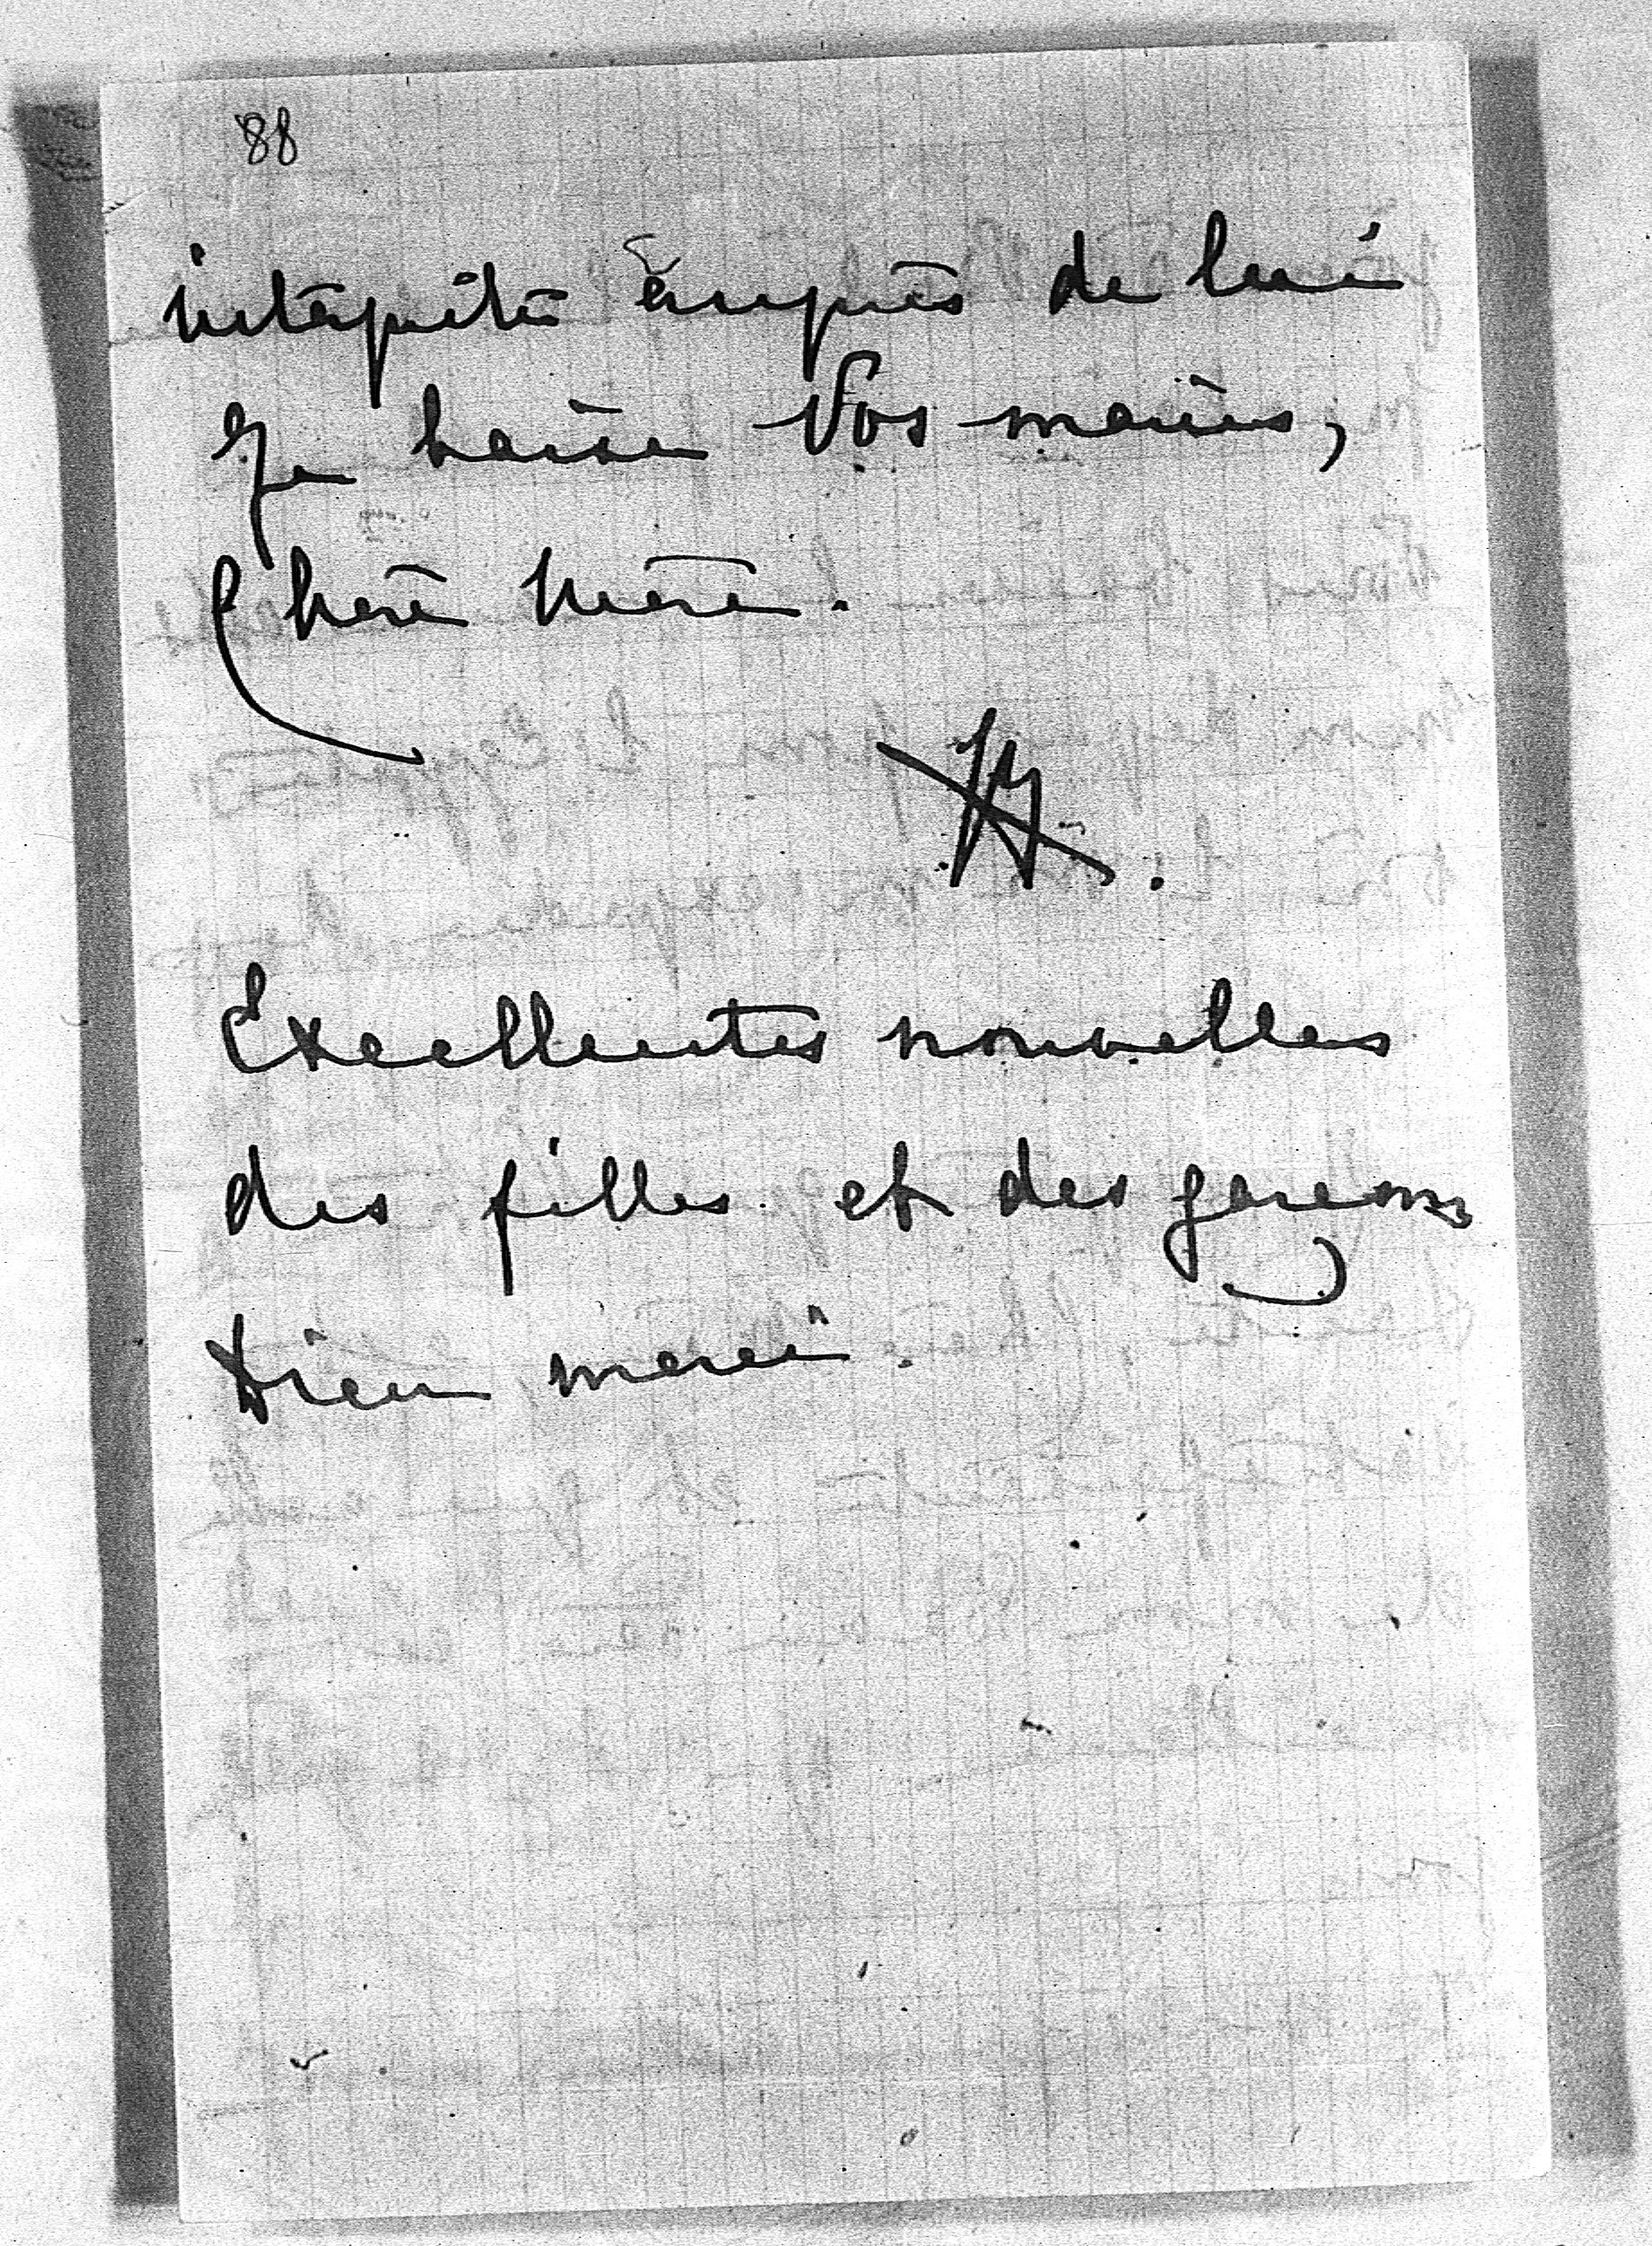 88
interprète auprès de lui
Je baise Vos mains,
Chère Mère.
Excellentes nouvelles
des filles et des garçons
Dieu merci.